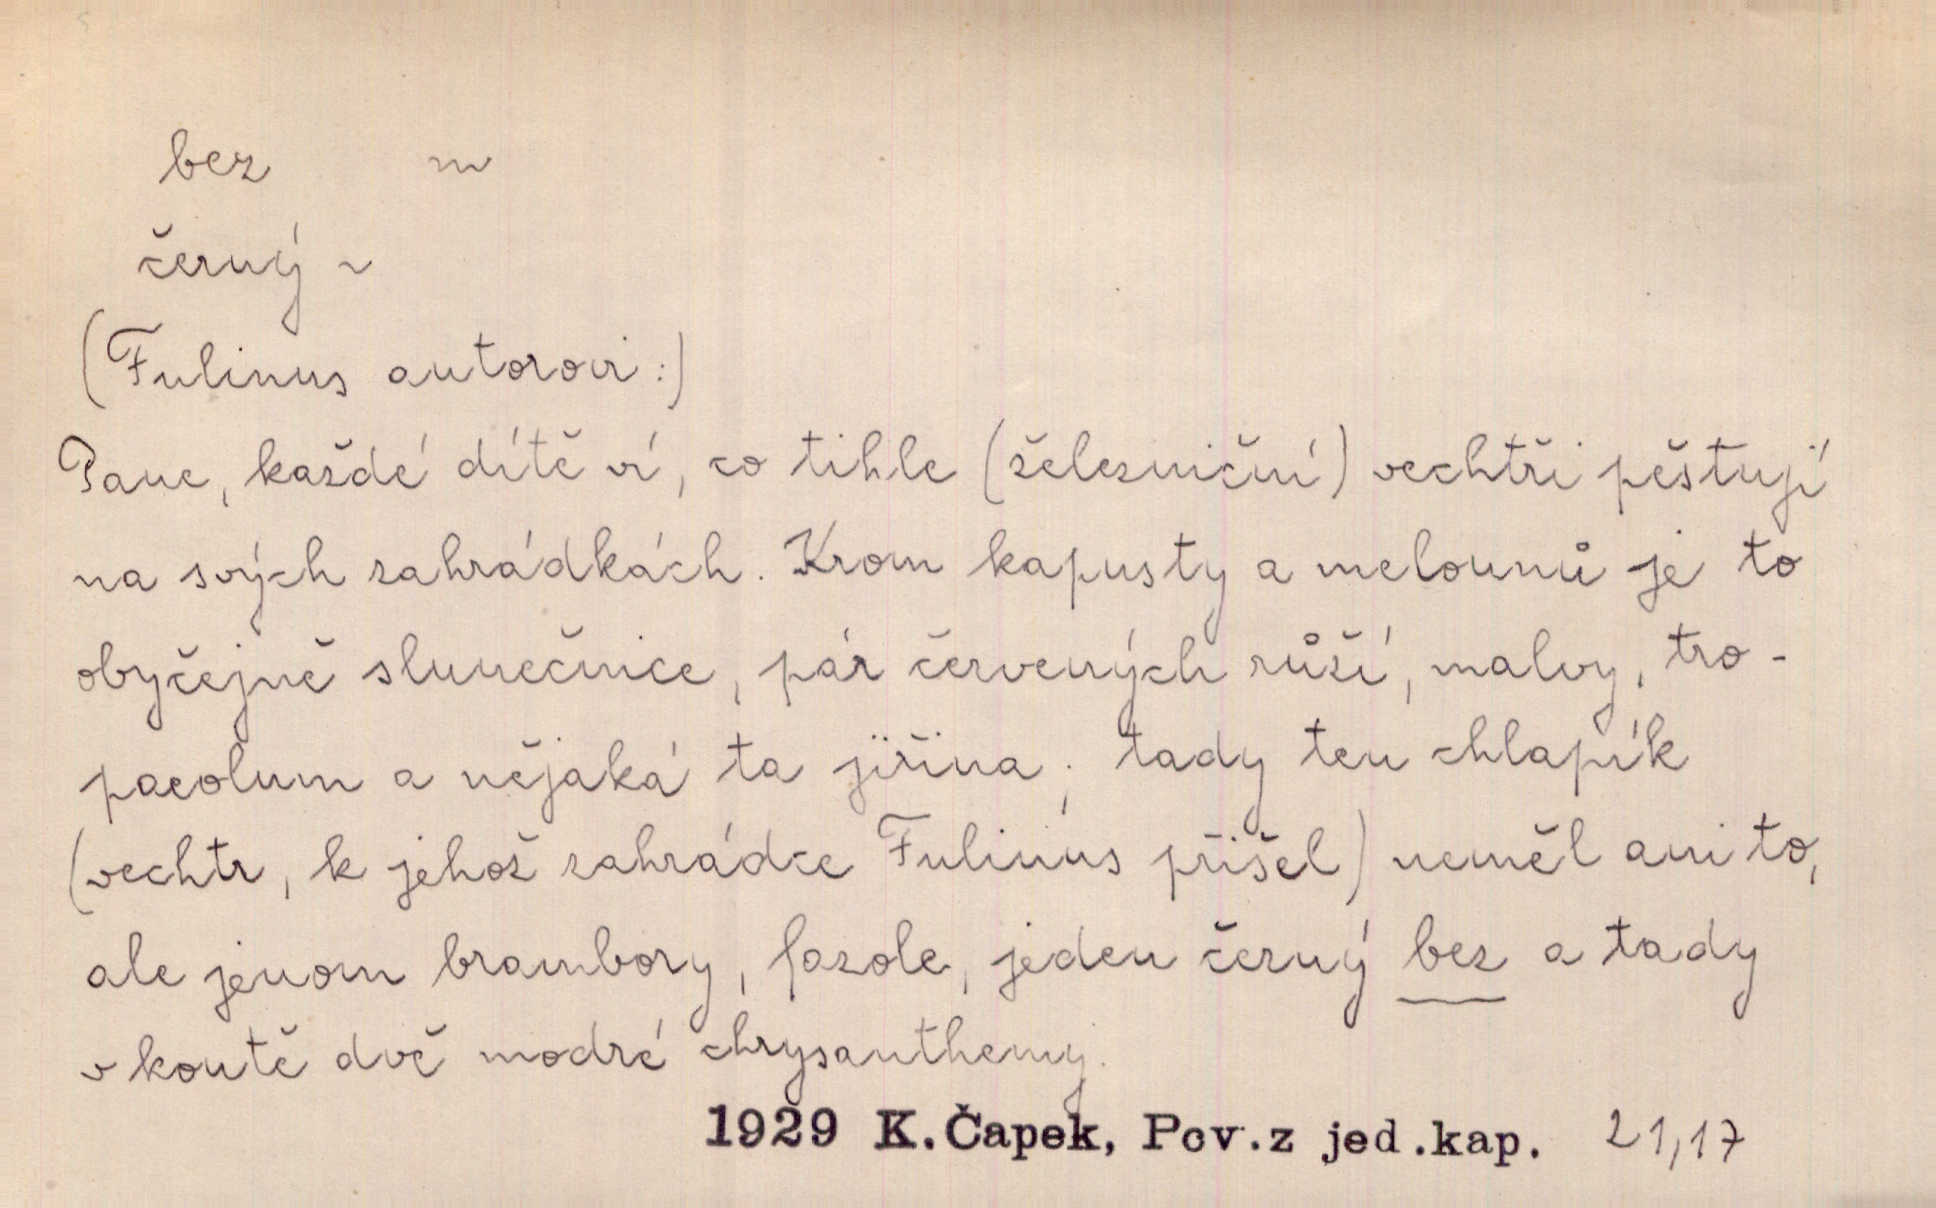 bez m
černý ~
(Fulinus autorovi:)
Pane, každé dítě ví, co tihle (železniční) vechtři pěstují
na svých zahrádkách. Krom kapusty a melounů je to
obyčejně slunečnice, pár červených růží, malvy, tro-
paeolum a nějaká ta jiřina; tady ten chlapík
(vechtr, k jehož zahrádce Fulinus přišel) neměl ani to,
ale jenom brambory, fazole, jeden černý bez a tady
v koutě dvě modré chrysanthemy.
1929 K. Čapek, Pov. z jed. kap. 21,17